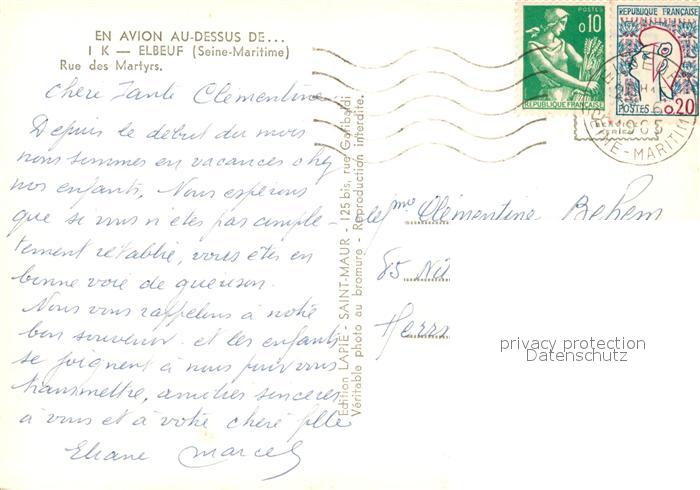 EN AVION AU-DESSUS DE...
I K — ELBEUF (Seine-Maritime)
Rue des Martyrs.
Chère Tante Clementine
Depuis le début du mois
nous sommes en vacances chez
nos enfants. Nous espérons
que si vous n'êtes pas complè-
tement rétablie, vous êtes en
bonne voie de guérison.
Nous vous rappelons à notre
bon souvenir et les enfants
se joignent à nous pour vous
transmettre, amitiés sincères
à vous et à votre chère fille
Eliane Marcel
Edition LAPIE - SAINT-MAUR - 125 bis, rue Garibaldi
Véritable photo au bromure - Reproduction interdite.
POSTES
0,10
REPUBLIQUE FRANÇAISE
REPUBLIQUE FRANÇAISE
POSTES 0,20
1965
SEINE-MARITIME
Clémentine Behem
85 Ni
Herrs
privacy protection
Datenschutz